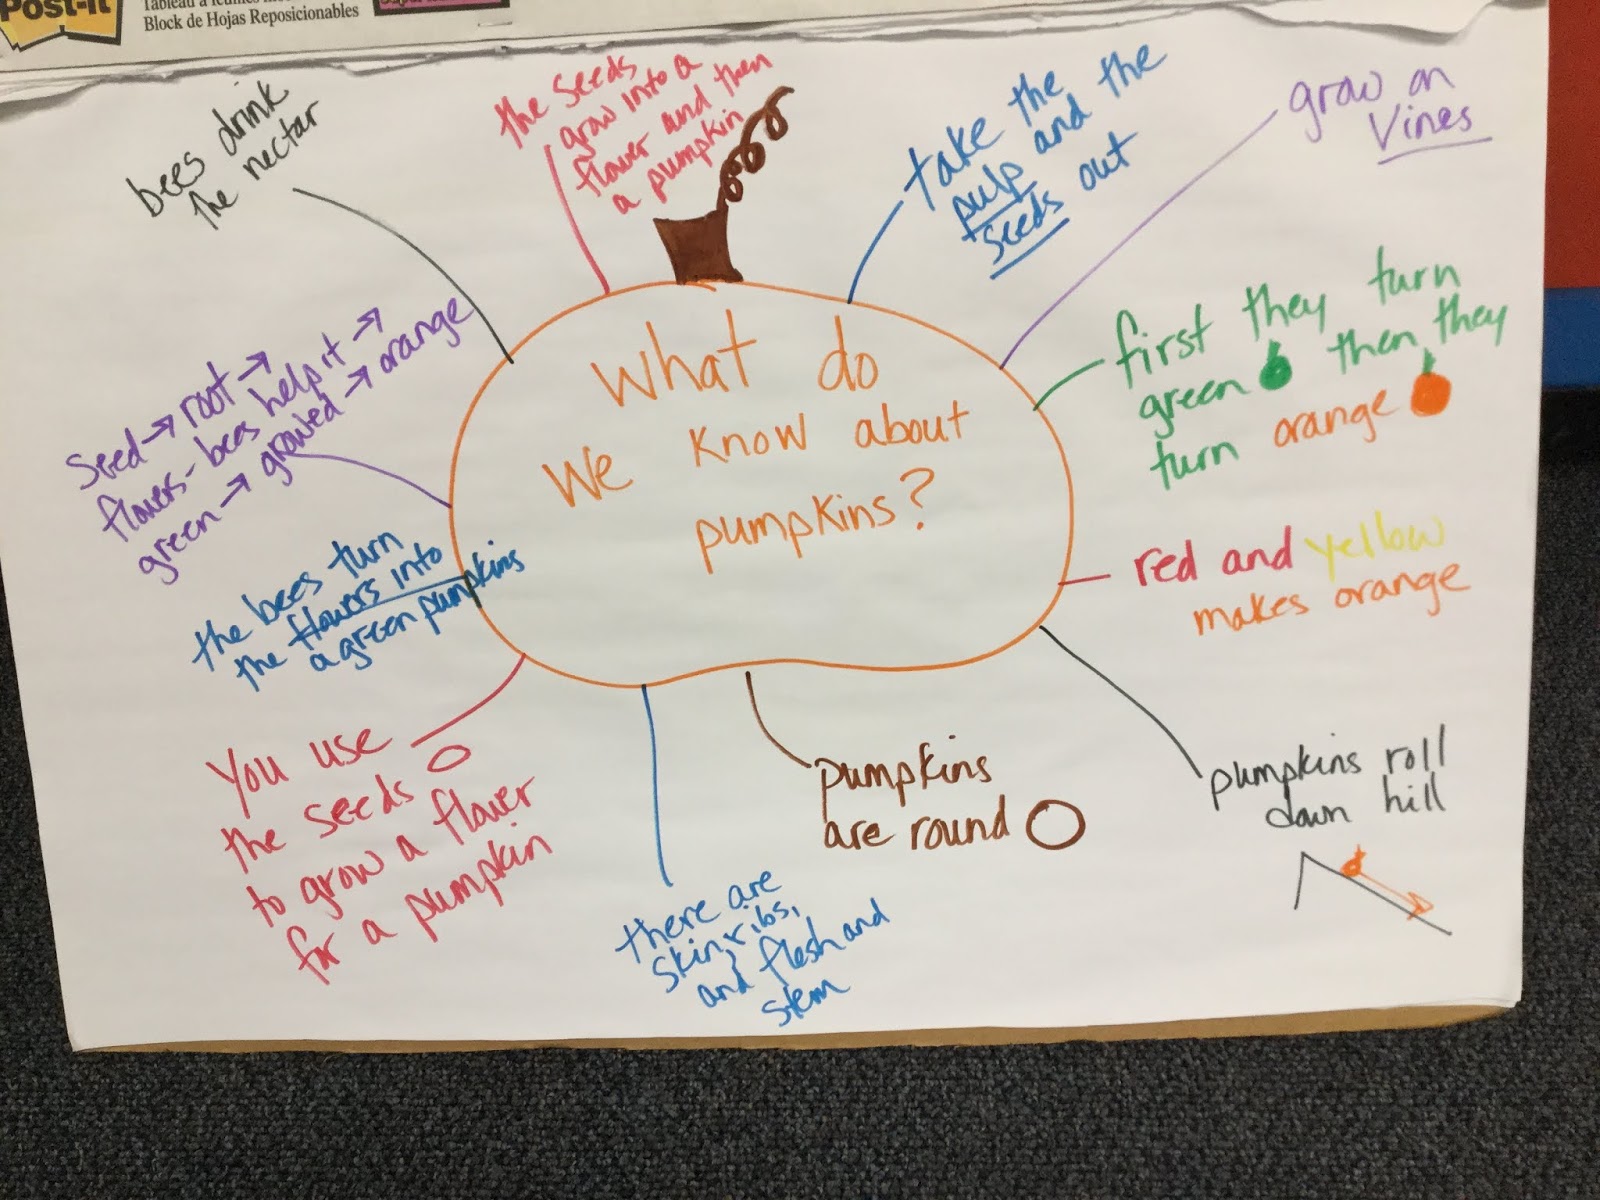 Post-it
Block de Hojas Reposicionables
What do
we know about
pumpkins?
bees drink
the nectar
the seeds
grow into a
flower and then
a pumpkin
take the
pulp and the
seeds out
grow on
vines
first they turn
green then they
turn orange
red and yellow
makes orange
pumpkins roll
down hill
pumpkins
are round
there are
skin, ribs,
and flesh and
stem
You use
the seeds
to grow a flower
for a pumpkin
the bees turn
the flowers into
a green pumpkins
Seed → root →
flowers - bees help it →
green → growed → orange